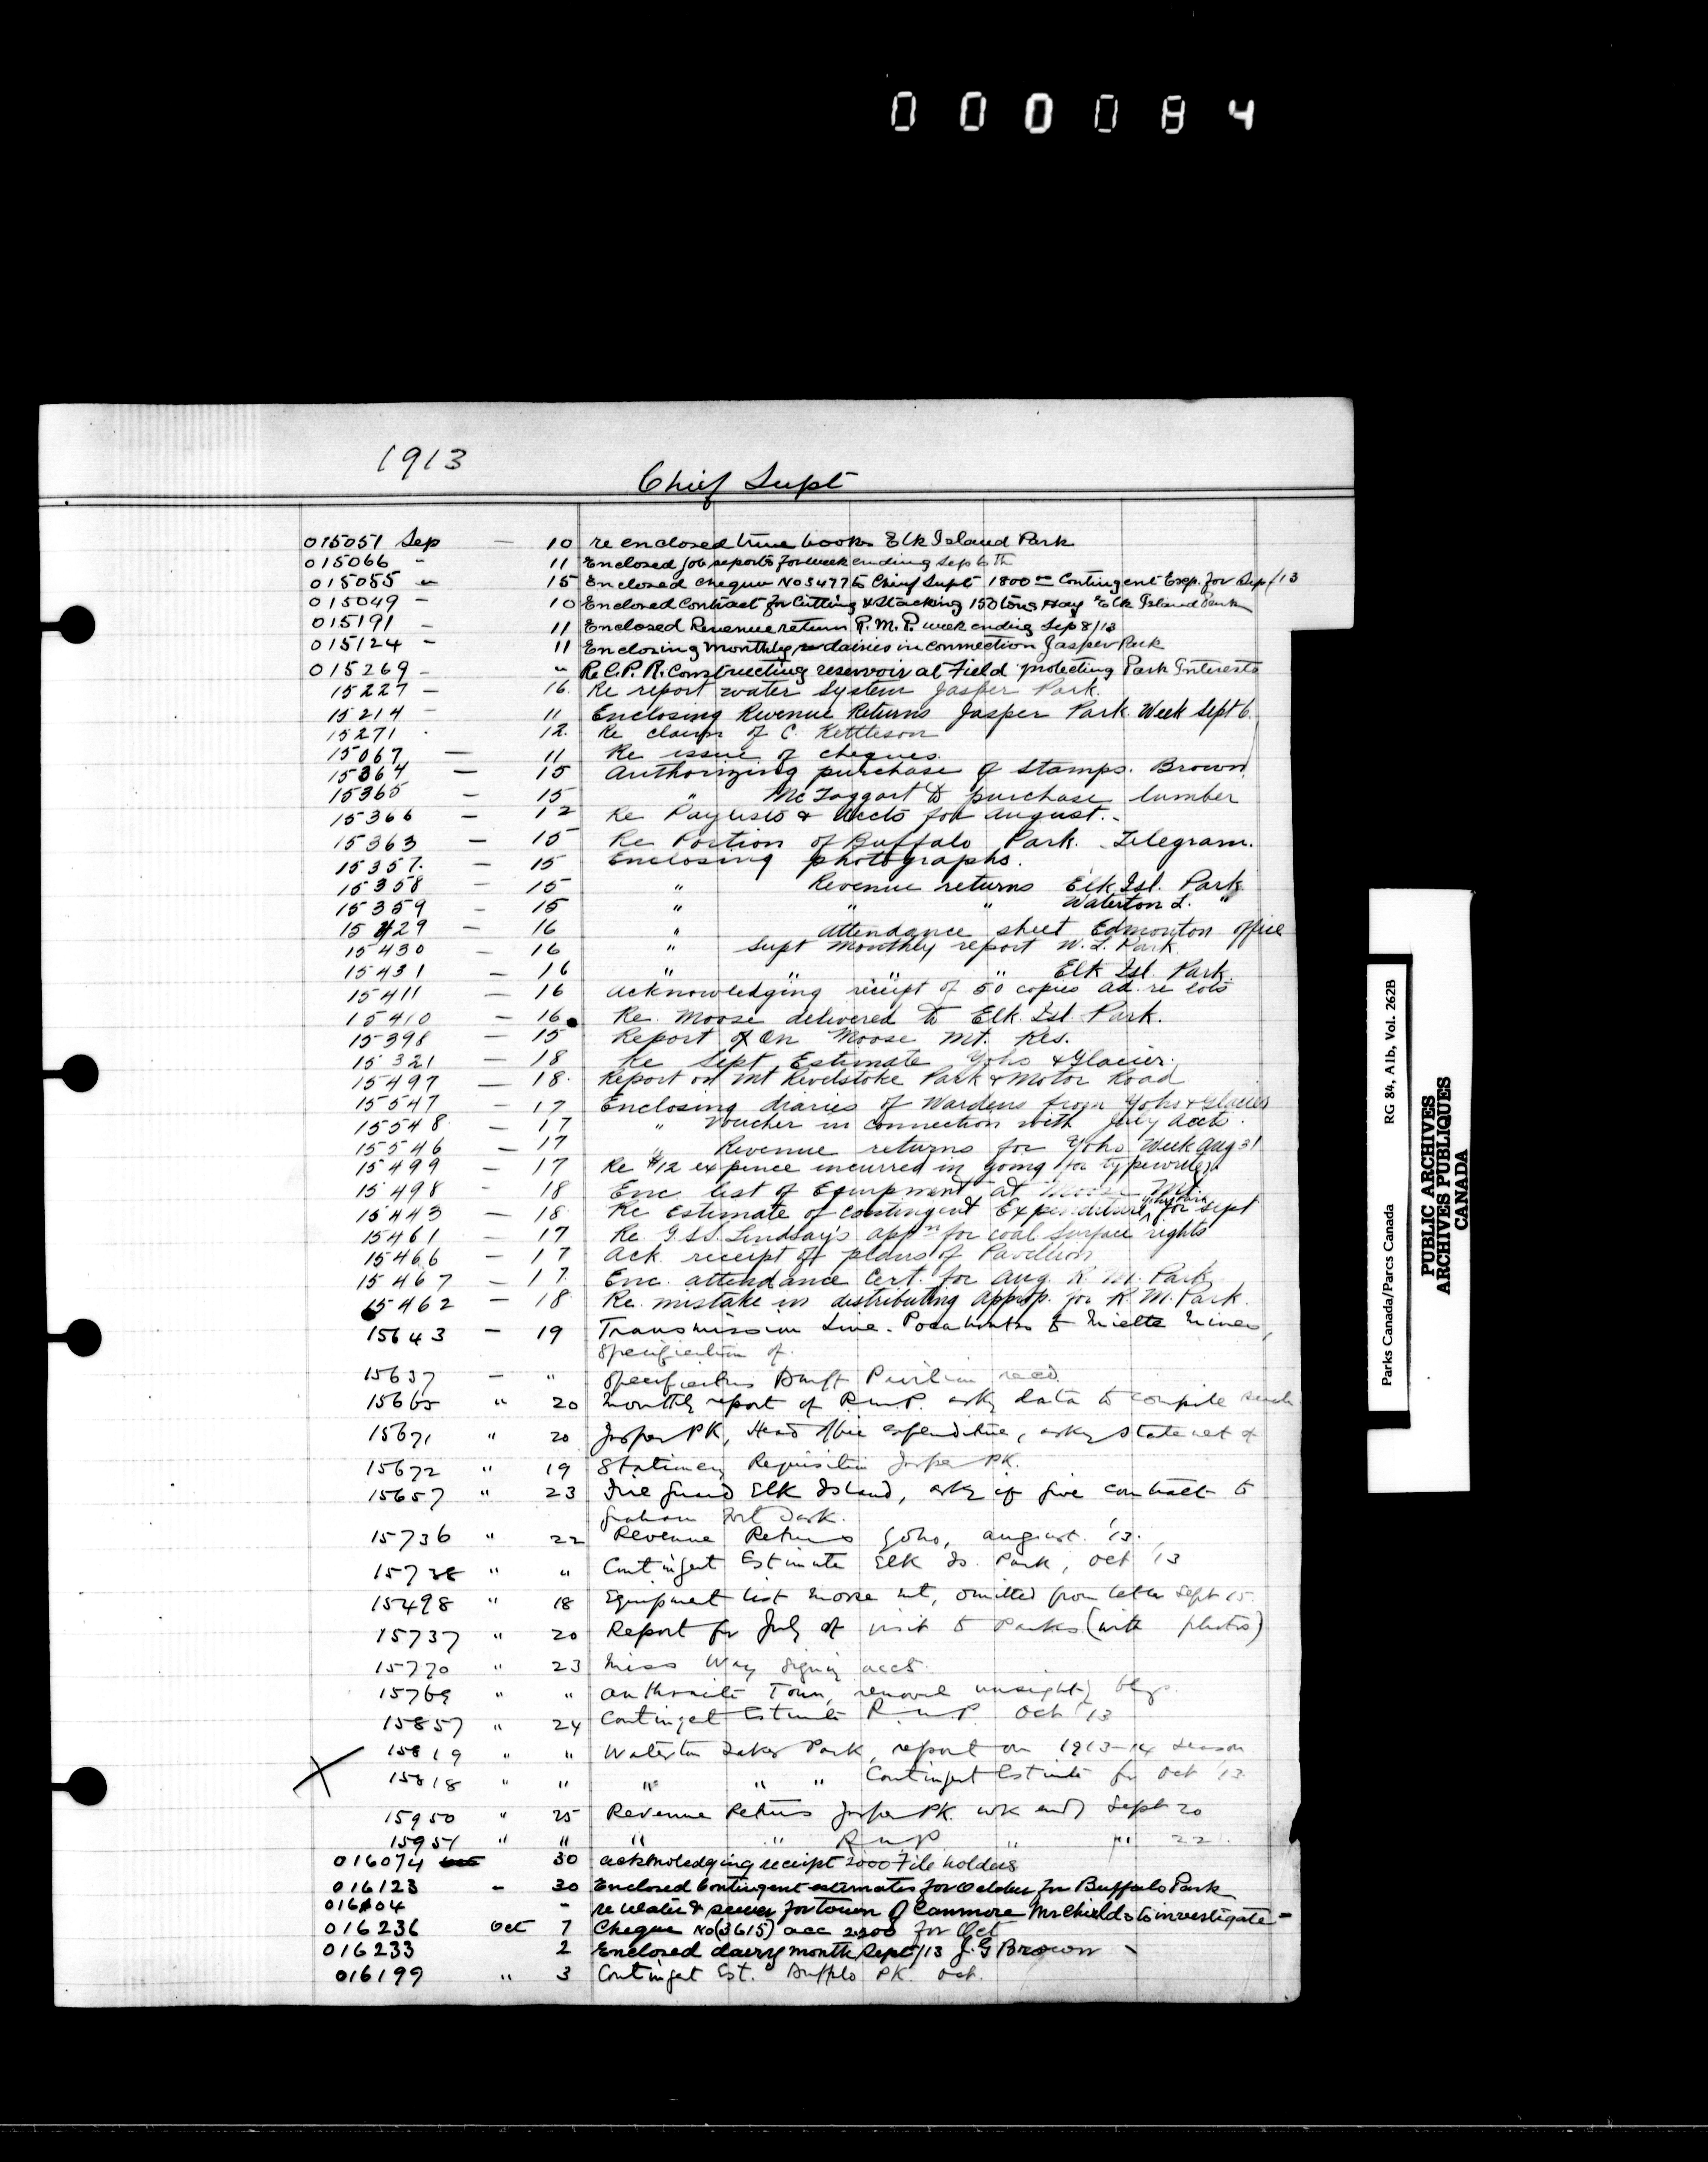 000084
1913
Chief Supt
015051 Sep — 10 re enclosed time books Elk Island Park
015066 - 11 Enclosed job reports for week ending Sep 6th
015055 " 15 Enclosed cheque No 3477 to Chief Supt 1800.00 Contingent Exp. for Sep/13
015049 - 10 Enclosed Contract for Cutting & Stacking 150 tons Hay Elk Island Park
015191 - 11 Enclosed Revenue return R.M.P. week ending Sep 8/13
015124 - 11 Enclosing monthly dairies in connection Jasper Park
015269 - " Re C.P.R. Constructing reservoir at Field protecting Park Interests
15227 - 16. Re report water system Jasper Park.
15214 - 11 Enclosing Revenue Returns Jasper Park. Week Sept 6.
15271 12. Re claim of C. Kettleson
15067 — 11 Re issue of cheques.
15364 — 15 Authorizing purchase of stamps. Brown
15365 - 15 " McTaggart to purchase lumber
15366 - 12 Re Paylists & Accts for August.
15363 - 15 Re Portion of Buffalo Park. Telegram.
15357. - 15 Enclosing photographs.
15358 - 15 " Revenue returns Elk Isl. Park
15359 - 15 " " " Waterton L. "
15429 - 16 " attendance sheet Edmonton office
15430 - 16 " Supt Monthly report W.L. Park.
15431 - 16 " " " " Elk Isl. Park.
15411 - 16 Acknowledging receipt of 50 copies ad. re lots
15410 - 16. Re. Moose delivered to Elk Isl. Park.
15398 - 15 Report on Moose Mt. Res.
15321 - 18 Re Sept Estimate Yoho & Glacier.
15497 — 18. Report on Mt Revelstoke Park & Motor Road
15547 - 17 Enclosing diaries of Wardens from Yoho & Glacier
15548 - 17 " Voucher in connection with July Accts.
15546 - 17 " Revenue returns for Yoho Week Aug 31
15499 - 17 Re $12 expence incurred in going for typewriter.
15498 - 18 Enc. list of Equipment at Moose Mt.
15443 - 18 Re Estimate of contingent Expenditure for Sept
15461 - 17 Re. G.S.S. Lindsay's appn for coal surface rights
15466 - 17 Ack. receipt of plans of Pavillion
15467 - 17. Enc. attendance Cert. for Aug. R.M. Park
15462 - 18 Re. mistake in distributing approp. for R.M. Park.
15643 - 19 Transmission Line. Pocahontas to Miette Mines,
specification of.
15637 - " Specifications Banff Pavilion recd
15665 " 20 Monthly report of R.M.P. askg data to compile such
15671 " 20 Jasper PK, Head Office expenditure, askg statement of
15672 " 19 Stationery Requisition Jasper PK.
15657 " 23 Fire guard Elk Island, askg if give contract to
Graham Fort Sask.
15736 " 22 Revenue Returns Yoho, august '13.
15738 " " Contingent Estimate Elk Is. Park, Oct '13
15498 " 18 Equipment list Moose Mt, omitted from letter Sept 15.
15737 " 20 Report for July of visit to Parks (with photos)
15770 " 23 Miss Way signing accts.
15769 " " Anthracite Town, removal unsightly bldgs.
15857 " 24 Contingent Estimate R.M.P. Oct '13
15819 " " Waterton Lakes Park, report on 1913-14 season
15818 " " " " " Contingent Estimate for Oct '13.
15950 " 25 Revenue Returns Jasper PK. wk endg Sept 20
15951 " " " " R.M.P. " " 22.
016074 30 acknoledging receipt 2000 File holders
016123 - 30 Enclosed Contingent estimates for October for Buffalo Park
016104 - re water & sewer for town of Canmore Mr Childs to investigate -
016236 Oct 7 Cheque No (3615) acc 2200 for Oct
016233 2 Enclosed dairy month Sept/13 J.G Brown
016199 " 3 Contingent Est. Buffalo PK. Oct.
Parks Canada/Parcs Canada RG 84, A1b, Vol. 262B
PUBLIC ARCHIVES
ARCHIVES PUBLIQUES
CANADA